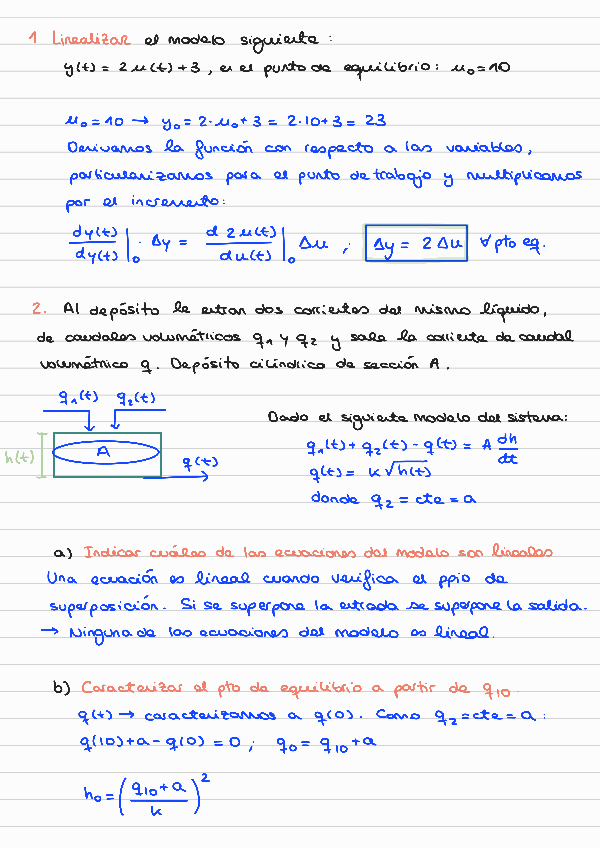 1 Linealizar el modelo siguiente:
y(t) = 2u(t)+3, en el punto de equilibrio: u₀=10
u₀=10 → y₀ = 2·u₀+3 = 2·10+3 = 23
Derivamos la función con respecto a las variables,
particularizamos para el punto de trabajo y multiplicamos
por el incremento:
dy(t)/dy(t)|₀ · Δy = d 2u(t)/du(t)|₀ Δu ; Δy = 2Δu ∀ pto eq.
2. Al depósito le entran dos corrientes del mismo líquido,
de caudales volumétricos q₁ y q₂ y sale la corriente de caudal
volumétrico q. Depósito cilíndrico de sección A.
q₁(t) q₂(t)
A
h(t)
q(t)
Dado el siguiente modelo del sistema:
q₁(t)+q₂(t)-q(t) = A dh/dt
q(t) = k√h(t)
donde q₂ = cte = a
a) Indicar cuáles de las ecuaciones del modelo son lineales
Una ecuación es lineal cuando verifica el ppio de
superposición. Si se superpone la entrada se superpone la salida.
→ Ninguna de las ecuaciones del modelo es lineal.
b) Caracterizar el pto de equilibrio a partir de q₁₀.
q(t) → caracterizamos a q(0). Como q₂=cte=a:
q(10)+a-q(0) = 0 ; q₀ = q₁₀+a
h₀ = ((q₁₀+a)/k)²